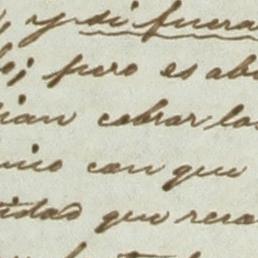 y si fuera
lo; pero es abs
ian cobrar las
mio con que
tidad que reca